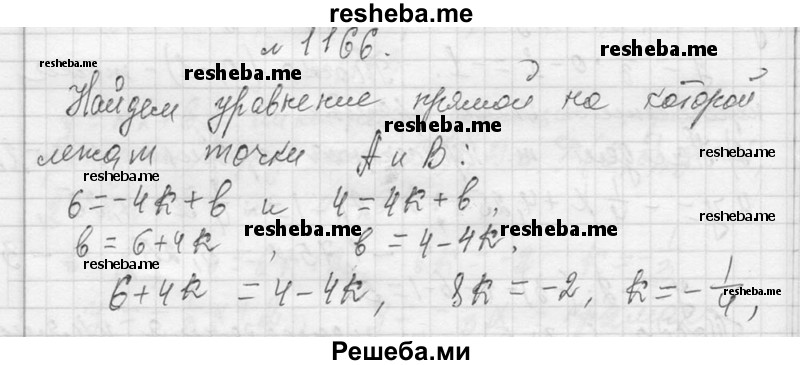 resheba.me
№ 1166.
resheba.me resheba.me resheba.me
Найдем уравнение прямой на которой
resheba.me
лежат точки А и В:
resheba.me
6=-4k+b и 4=4k+b,
resheba.me
b=6+4k, b=4-4k,
resheba.me resheba.me
resheba.me
6+4k=4-4k, 8k=-2, k=-1/4,
resheba.me resheba.me resheba.me
Решеба.ми